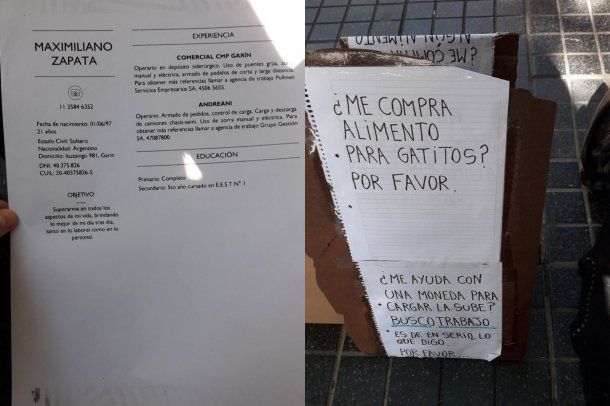 MAXIMILIANO
ZAPATA
11 2584 6352
Fecha de nacimiento: 01/06/97
21 años.
Estado Civil: Soltero
Nacionalidad: Argentino
Domicilio: Ituzaingo 981. Garín
DNI: 40.375.826
CUIL: 20-40375826-5
OBJETIVO
Superarme en todos los
aspectos de mi vida, brindando
lo mejor de mi día tras día,
tanto en lo laboral como en lo
personal.
EXPERIENCIA
COMERCIAL CMP GARÍN
Operario en depósito siderúrgico. Uso de puentes grúa, zorra
manual y eléctrica, armado de pedidos de corta y larga distancia.
Para obtener más referencias llamar a agencia de trabajo Pullmen
Servicios Empresarios SA, 4506 5655.
ANDREANI
Operario. Armado de pedidos, control de carga. Carga y descarga
de camiones chasis-semi. Uso de zorra manual y eléctrica. Para
obtener más referencias llamar a agencia de trabajo Grupo Gestión
SA, 47087800.
EDUCACIÓN
Primario: Completo
Secundario: 5to año cursado en E.E.S.T N° 1
ALGÚN ALIMENTO
¿ME COMPRA
¿ME COMPRA
ALIMENTO
PARA GATITOS?
POR FAVOR.
¿ME AYUDA CON
UNA MONEDA PARA
CARGAR LA SUBE?
BUSCO TRABAJO.
ES DE EN SERIO, LO
QUE DIGO.
POR FAVOR...